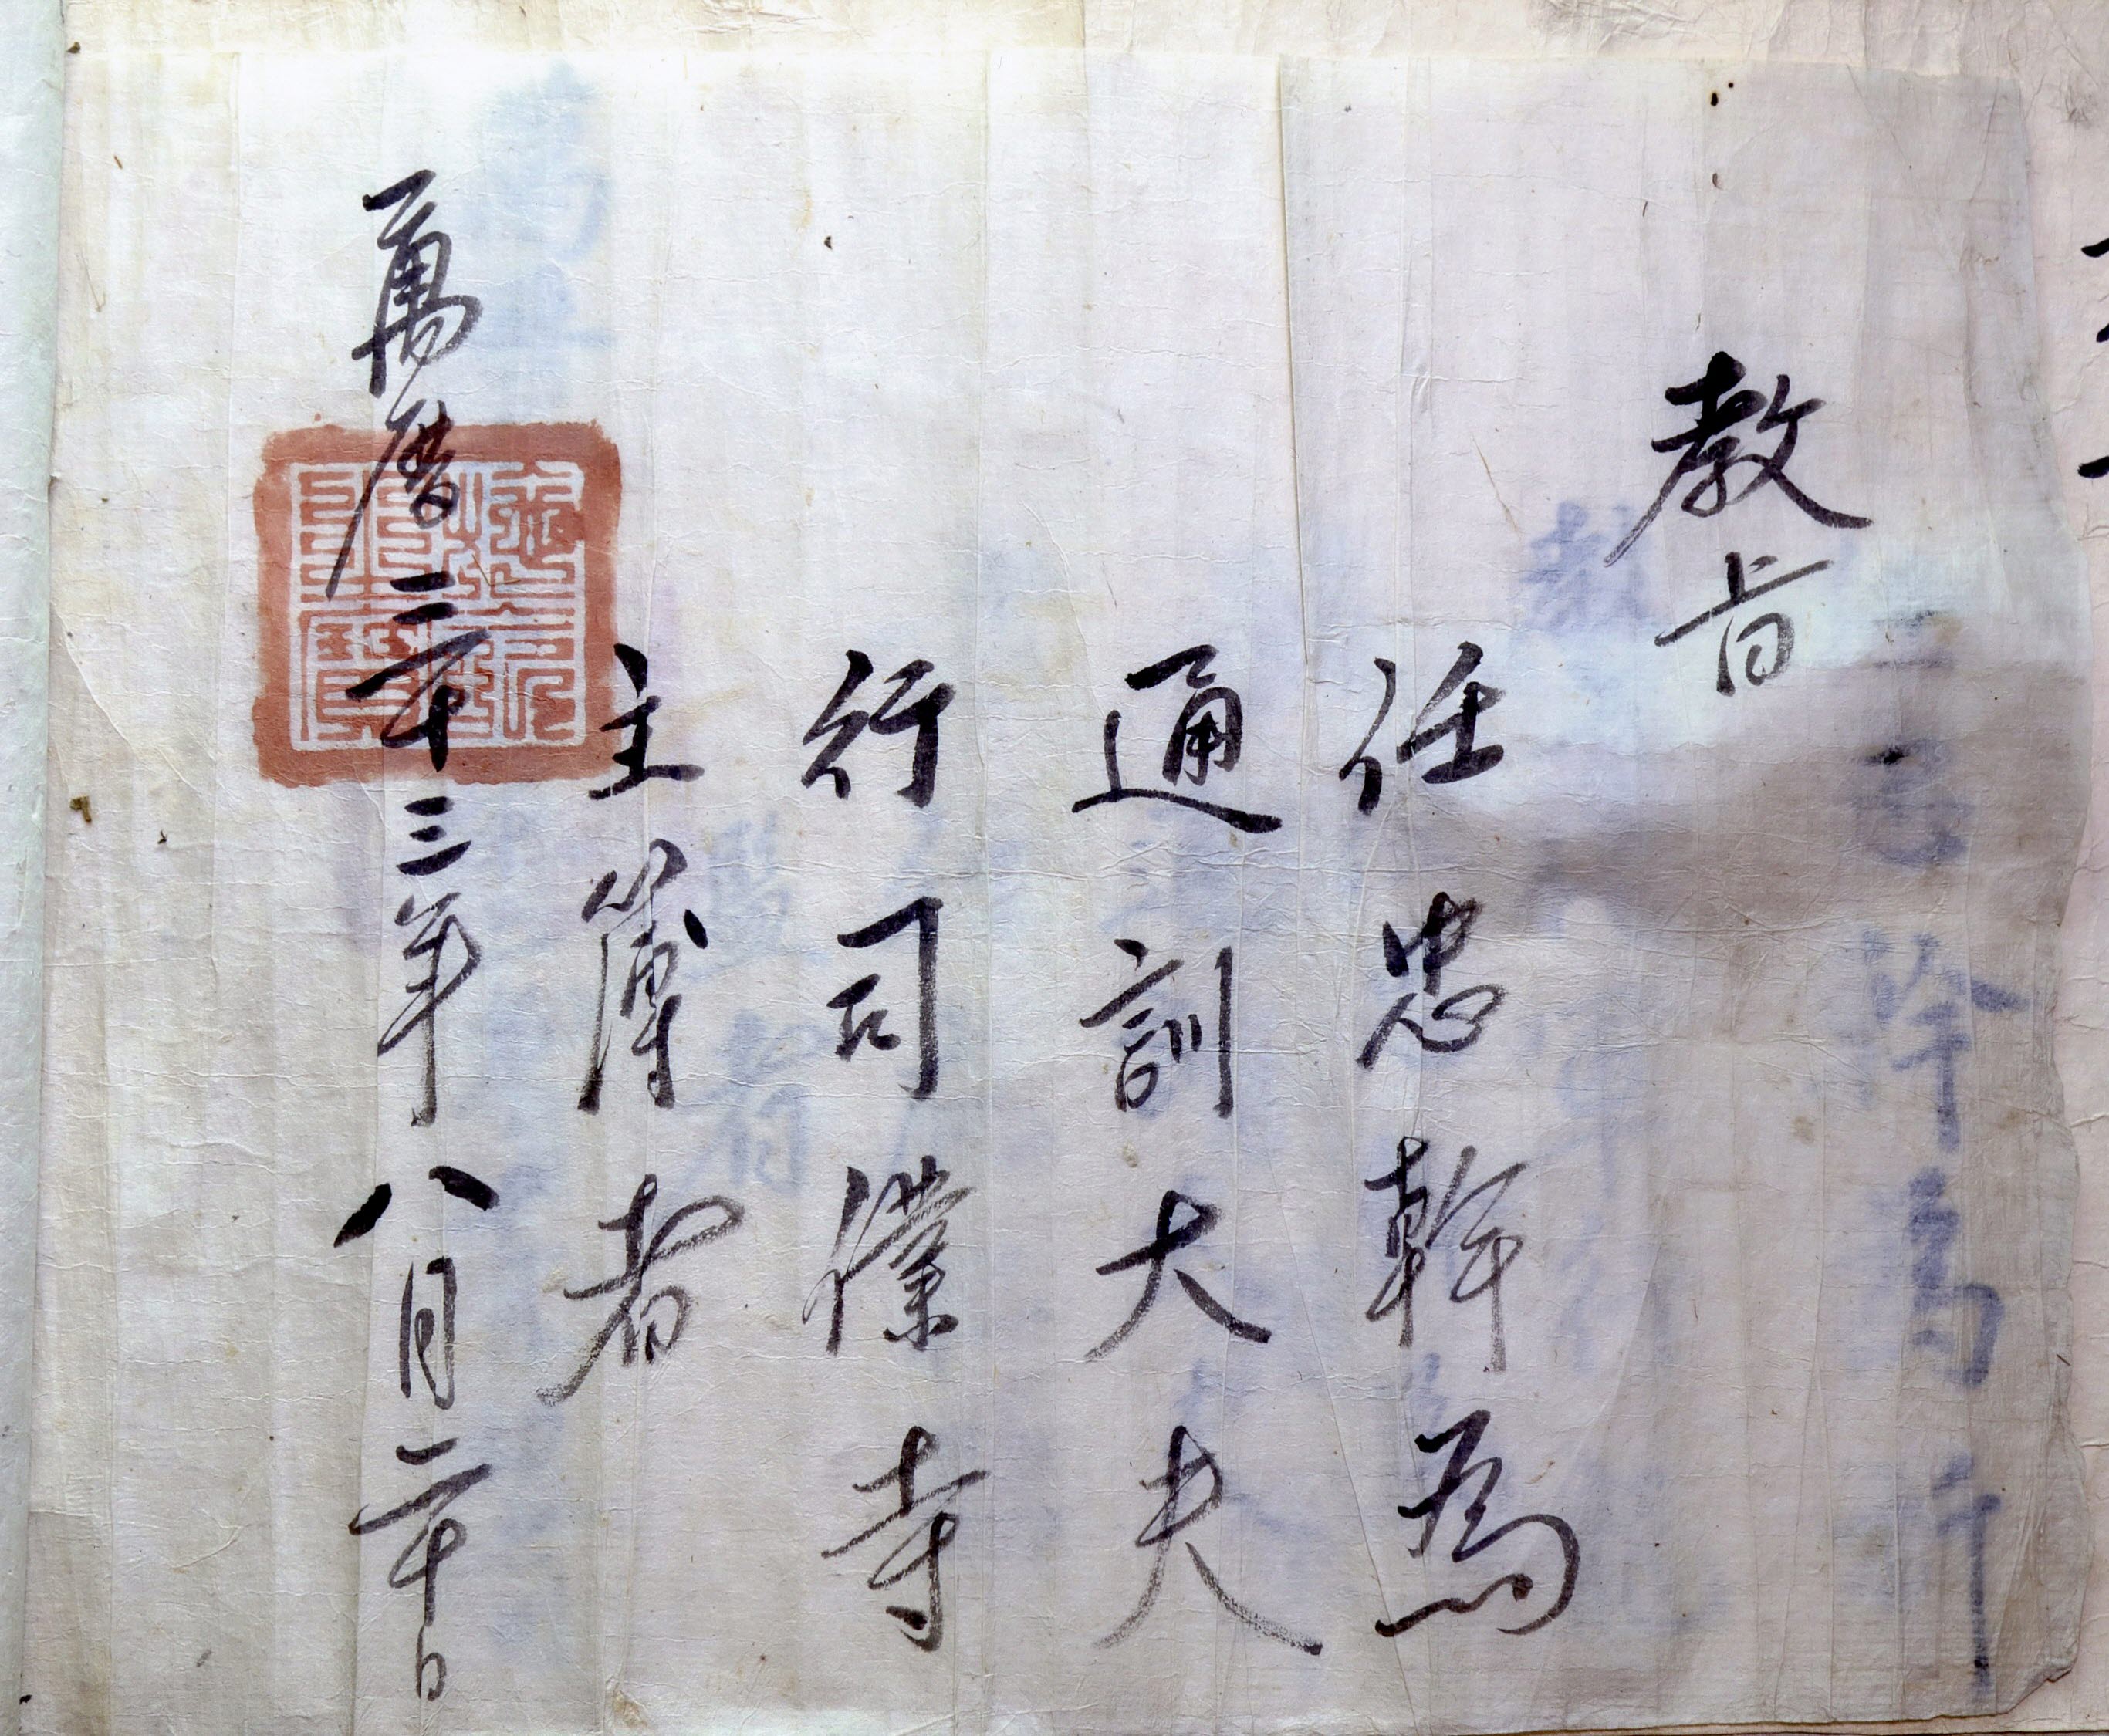 教旨
任忠幹爲
通訓大夫
行司僕寺
主簿者
萬曆二十三年八月二十日